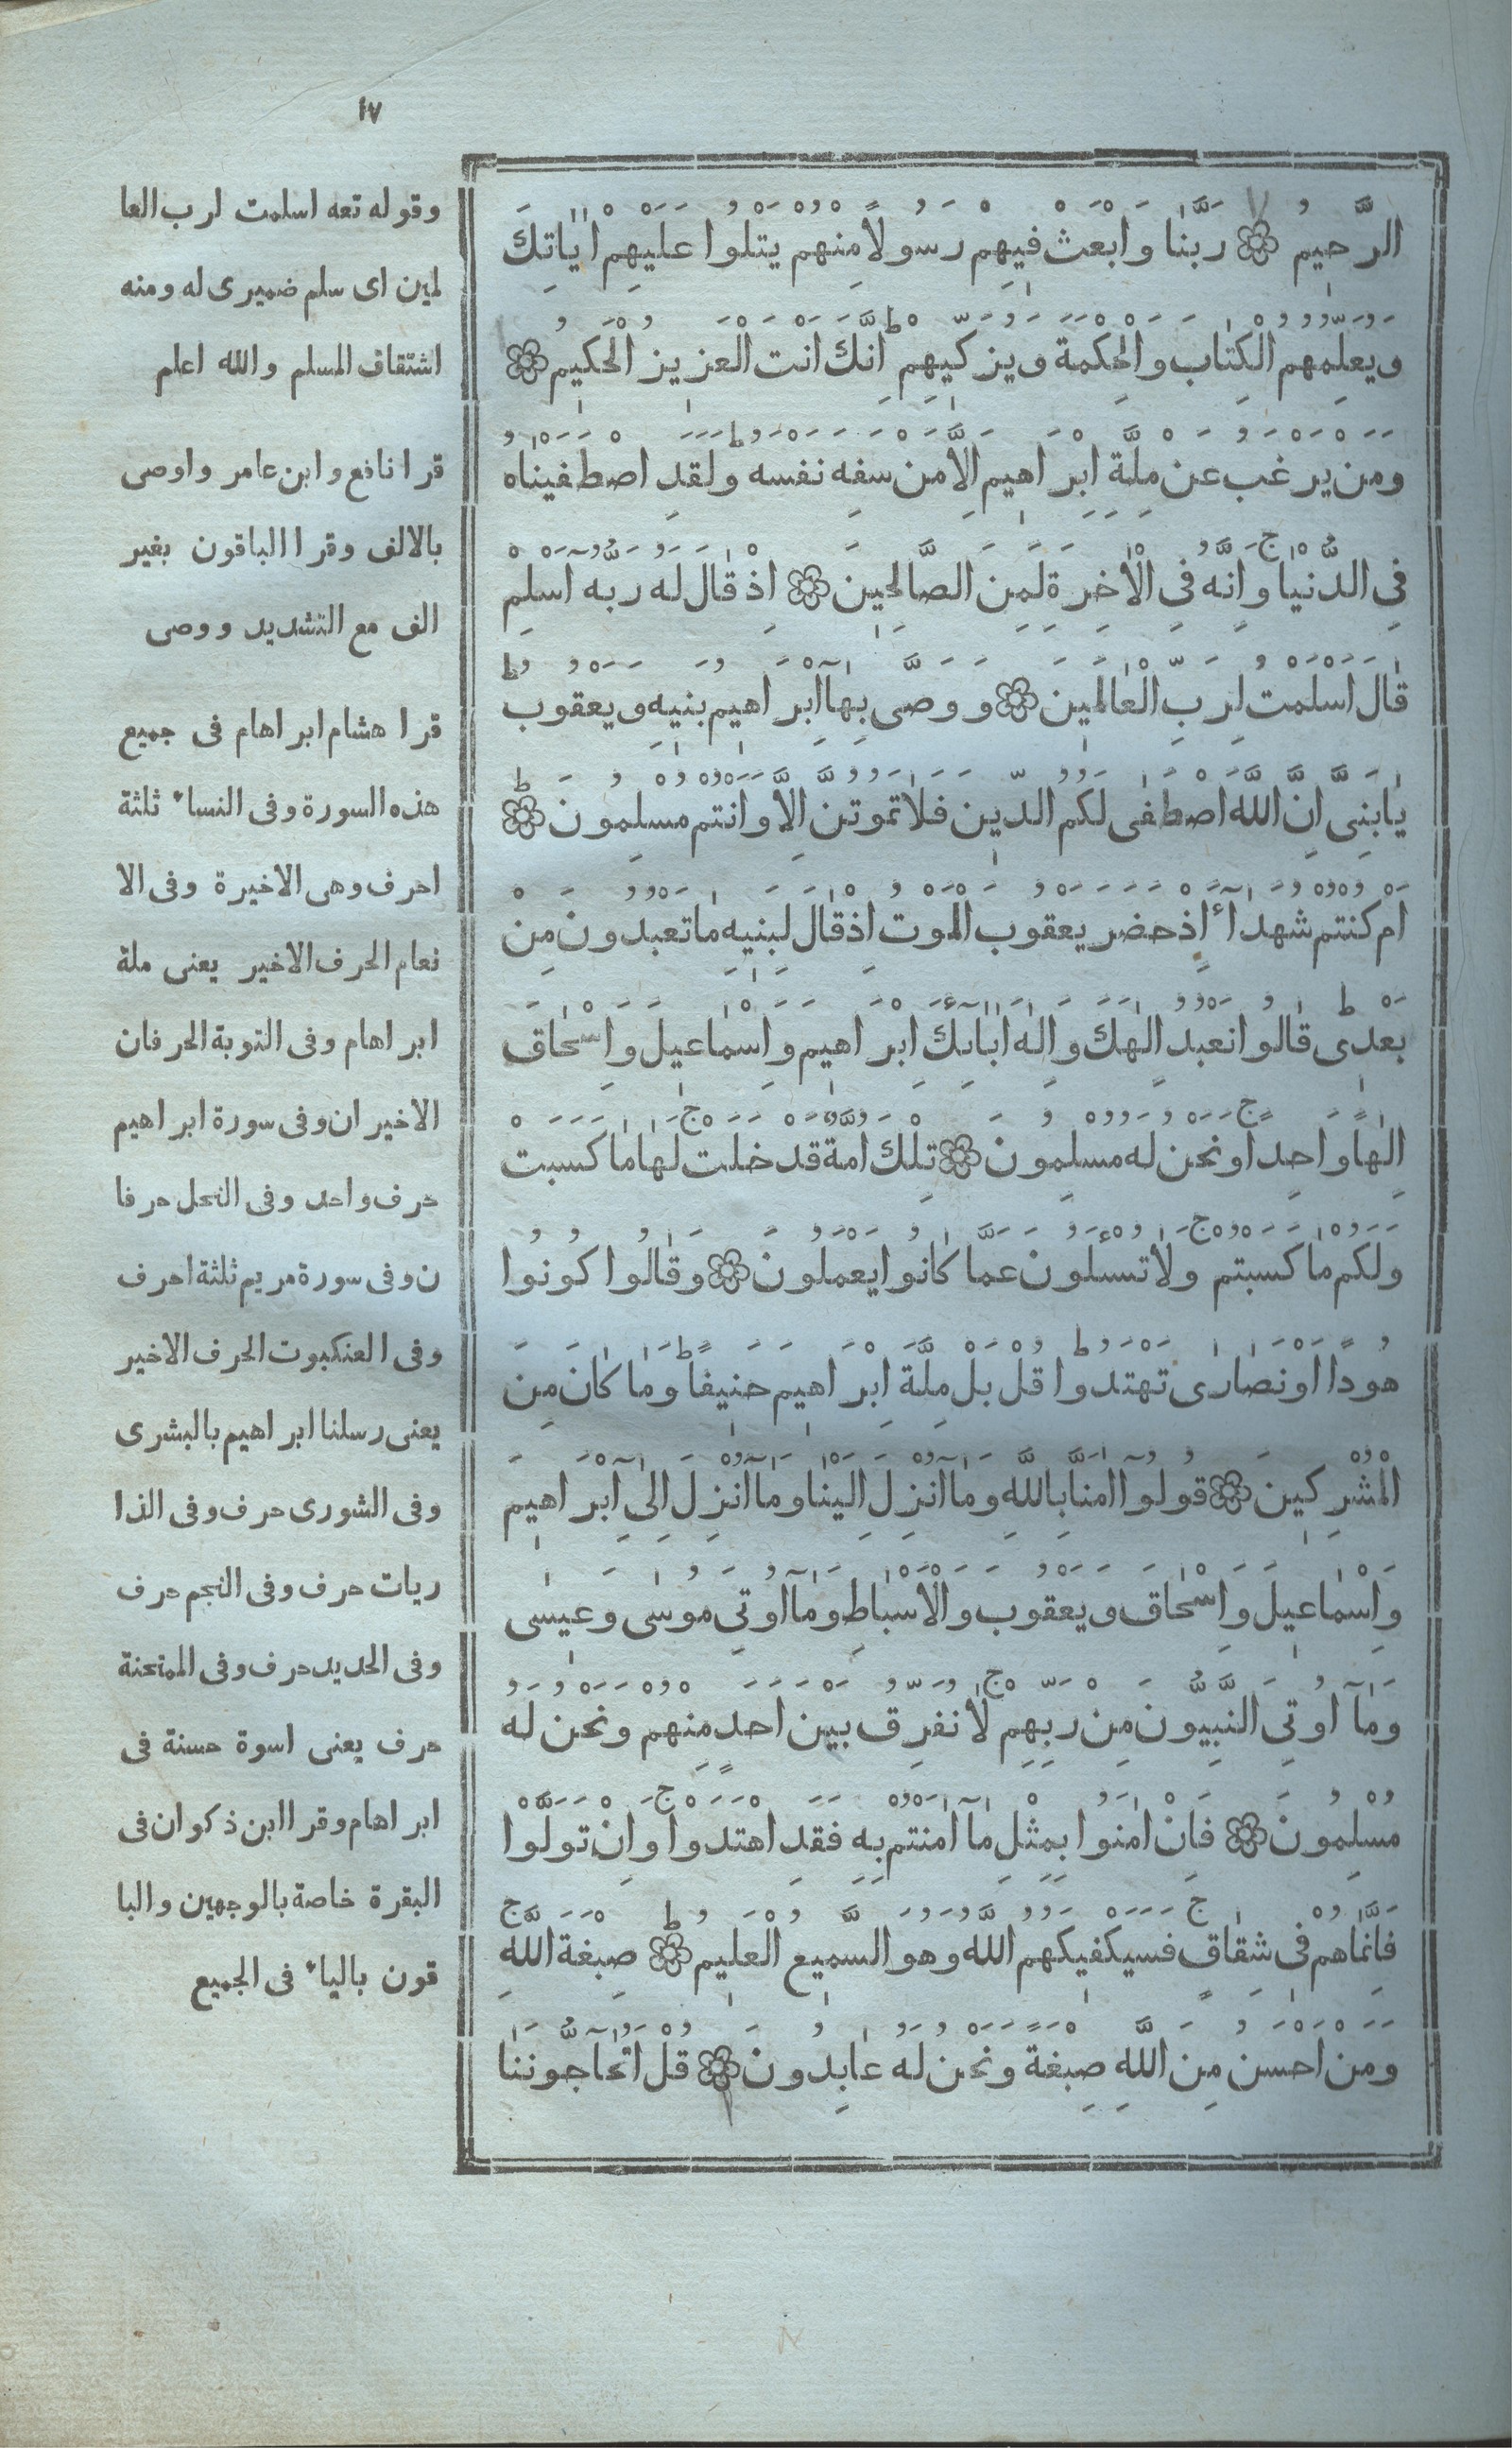 ١٧
الرَّحيمُ ۝ رَبَّنٰا وَابْعَثْ فيهِمْ رَسُولًا مِنْهُمْ يَتْلُوا عَلَيْهِمْ اٰيٰاتِكَ
وَيُعَلِّمُهُمُ الْكِتٰابَ وَالْحِكْمَةَ وَيُزَكّيهِمْ ط اِنَّكَ اَنْتَ الْعَزيزُ الْحَكيمُ ۝
وَمَنْ يَرْغَبُ عَنْ مِلَّةِ اِبْرٰاهيمَ اِلَّا مَنْ سَفِهَ نَفْسَهُ ط وَلَقَدِ اصْطَفَيْنٰاهُ
فِى الدُّنْيٰا ج وَاِنَّهُ فِى الْاٰخِرَةِ لَمِنَ الصَّالِحينَ ۝ اِذْ قٰالَ لَهُ رَبُّهُ اَسْلِمْ
قٰالَ اَسْلَمْتُ لِرَبِّ الْعٰالَمينَ ۝ وَوَصَّى بِهٰا اِبْرٰاهيمُ بَنيهِ وَيَعْقُوبُ ط
يٰابَنِىَّ اِنَّ اللَّهَ اصْطَفٰى لَكُمُ الدّينَ فَلٰا تَمُوتُنَّ اِلَّا وَاَنْتُمْ مُسْلِمُونَ ط ۝
اَمْ كُنْتُمْ شُهَدٰاءَ اِذْ حَضَرَ يَعْقُوبَ الْمَوْتُ اِذْ قٰالَ لِبَنيهِ مٰا تَعْبُدُونَ مِنْ
بَعْدى ط قٰالُوا نَعْبُدُ اِلٰهَكَ وَاِلٰهَ اٰبٰائِكَ اِبْرٰاهيمَ وَاِسْمٰاعيلَ وَاِسْحٰاقَ
اِلٰهًا وَاحِدًا ج وَنَحْنُ لَهُ مُسْلِمُونَ ۝ تِلْكَ اُمَّةٌ قَدْ خَلَتْ ج لَهٰا مٰا كَسَبَتْ
وَلَكُمْ مٰا كَسَبْتُمْ ج وَلٰا تُسْئَلُونَ عَمَّا كٰانُوا يَعْمَلُونَ ۝ وَقٰالُوا كُونُوا
هُودًا اَوْ نَصٰارٰى تَهْتَدُوا ط قُلْ بَلْ مِلَّةَ اِبْرٰاهيمَ حَنيفًا ط وَمٰا كٰانَ مِنَ
الْمُشْرِكينَ ۝ قُولُوا اٰمَنَّا بِاللَّهِ وَمٰا اُنْزِلَ اِلَيْنٰا وَمٰا اُنْزِلَ اِلٰى اِبْرٰاهيمَ
وَاِسْمٰاعيلَ وَاِسْحٰاقَ وَيَعْقُوبَ وَالْاَسْبٰاطِ وَمٰا اُوتِىَ مُوسٰى وَعيسٰى
وَمٰا اُوتِىَ النَّبِيُّونَ مِنْ رَبِّهِمْ ج لٰا نُفَرِّقُ بَيْنَ اَحَدٍ مِنْهُمْ وَنَحْنُ لَهُ
مُسْلِمُونَ ۝ فَاِنْ اٰمَنُوا بِمِثْلِ مٰا اٰمَنْتُمْ بِهِ فَقَدِ اهْتَدَوْا ج وَاِنْ تَوَلَّوْا
فَاِنَّمٰا هُمْ فى شِقٰاقٍ ج فَسَيَكْفيكَهُمُ اللَّهُ وَهُوَ السَّميعُ الْعَليمُ ط ۝ صِبْغَةَ اللَّهِ ج
وَمَنْ اَحْسَنُ مِنَ اللَّهِ صِبْغَةً وَنَحْنُ لَهُ عٰابِدُونَ ۝ قُلْ اَتُحٰاجُّونَنٰا
وقوله تعه اسلمت لرب العا
لمين اى سلم ضميرى له ومنه
اشتقاق المسلم والله اعلم
قرا نافع وابن عامر واوصى
بالالف وقرا الباقون بغير
الف مع التشديد ووصى
قرا هشام ابراهام فى جميع
هذه السورة وفى النساء ثلثة
احرف وهى الاخيرة وفى الا
نعام الحرف الاخير يعنى ملة
ابراهام وفى التوبة الحرفان
الاخيران وفى سورة ابراهيم
حرف واحد وفى النحل حرفا
ن وفى سورة مريم ثلثة احرف
وفى العنكبوت الحرف الاخير
يعنى رسلنا ابراهيم بالبشرى
وفى الشورى حرف وفى الذا
ريات حرف وفى النجم حرف
وفى الحديد حرف وفى الممتحنة
حرف يعنى اسوة حسنة فى
ابراهام وقرا ابن ذكوان فى
البقرة خاصة بالوجهين والبا
قون بالياء فى الجميع